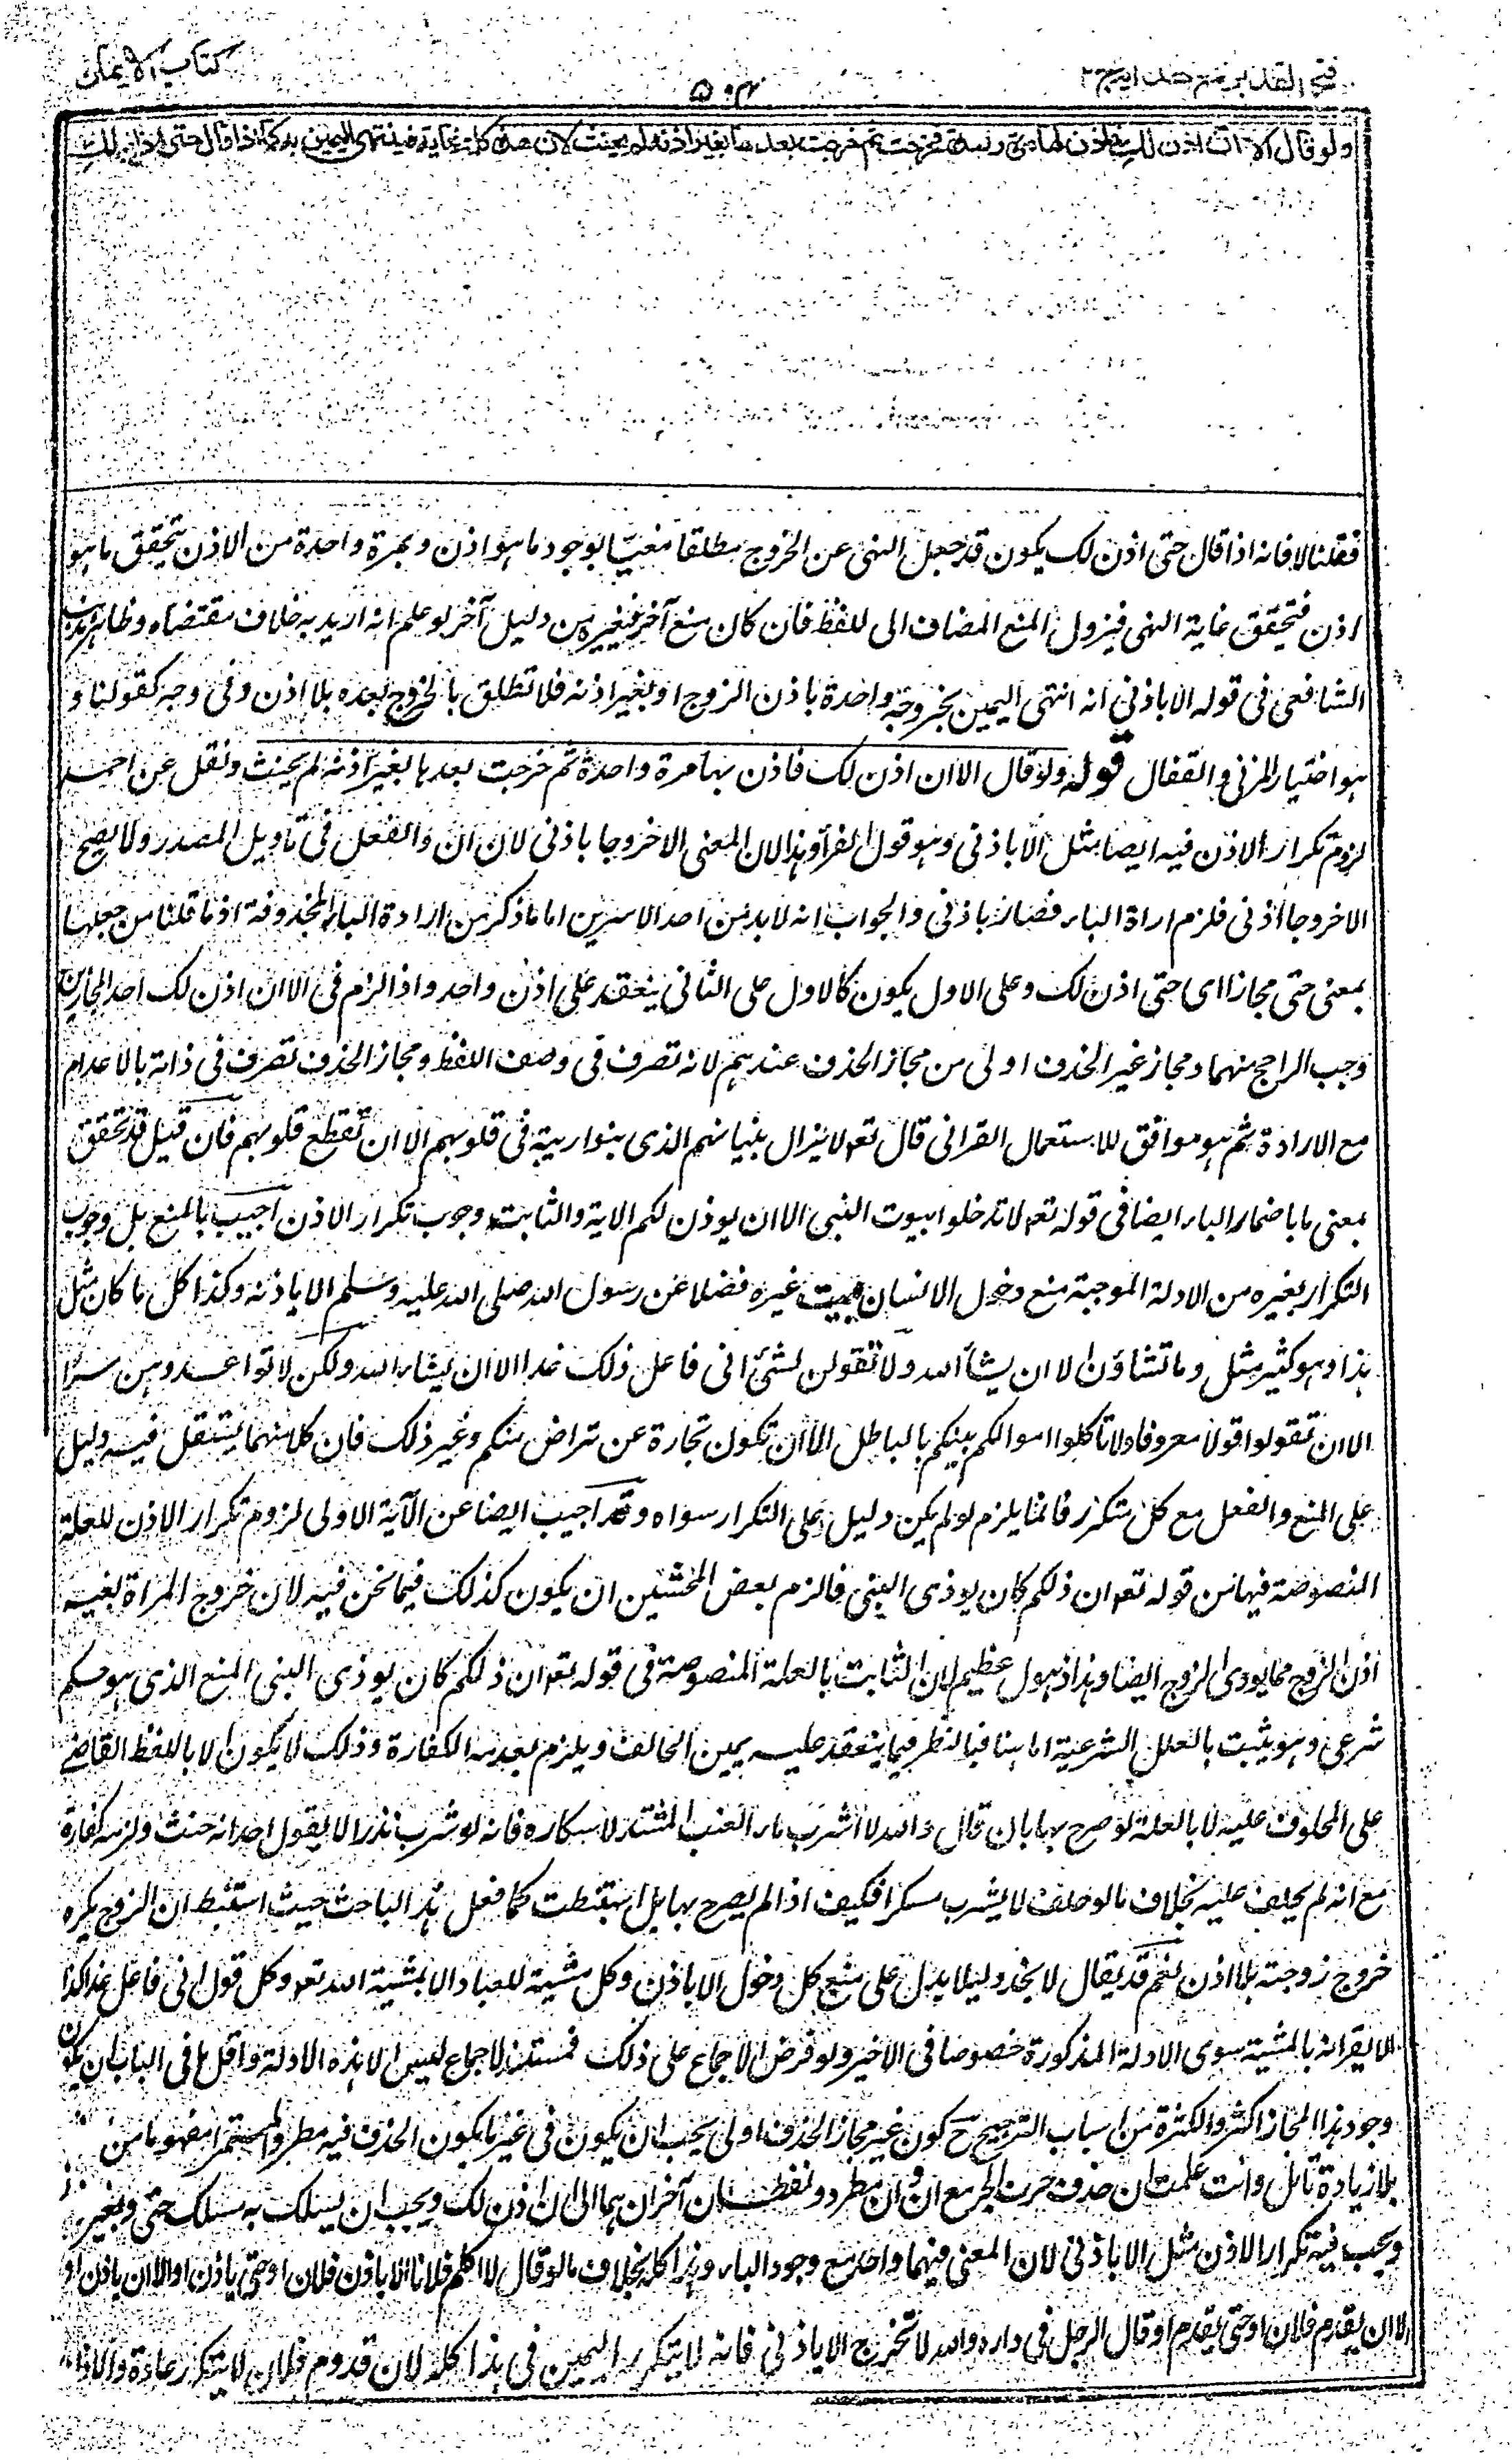 فتح القدير مع هدايه ج ٢
٥٠٤
كتاب الايمان
ولو قال الا ان اذن لك فاذن لها مرة واحدة فخرجت ثم خرجت بعدها بغير اذنه لم يحنث لان هذه كلمة غاية فينتهى اليمين به كما اذا قال حتى اذن لك
فقلنا لا فانه اذا قال حتى اذن لك يكون قد جعل النهى عن الخروج مطلقا مغيا بوجود ما هو اذن وبمرة واحدة من الاذن يتحقق ما هو
اذن فتحقق غاية النهى فيزول المنع المضاف الى للفظ فان كان منع آخر فبغيره من دليل آخر لو علم انه اريد به خلاف مقتضاه وظاهر مذهب
الشافعى فى قوله الا باذنى انه انتهى اليمين بخروجة واحدة باذن الزوج او بغير اذنه فلا تطلق بالخروج بعده بلا اذن وفى وجه كقولنا و
هو اختيار المزنى والقفال قوله ولو قال الا ان اذن لك فاذن بها مرة واحدة ثم خرجت بعدها بغير اذنه لم يحنث ونقل عن احمد
لزوم تكرار الاذن فيه ايضا مثل الا باذنى وهو قول الفراء وهذا لان المعنى الا خروجا باذنى لان ان والفعل فى تاويل المصدر ولا يصح
الا خروجا اذنى فلزم اراة الباء فصار باذنى والجواب انه لابد من احد الامرين اما ما ذكر من ارادة الباء المحذوفة او ما قلنا من جعلها
بمعنى حتى مجازا اى حتى اذن لك وعلى الاول يكون كالاول على الثانى ينعقد على اذن واحد واذا لزم فى الا ان اذن لك احد المجازين
وجب الراجح منهما ومجاز غير الحذف اولى من مجاز الحذف عندهم لانه تصرف فى وصف اللفظ ومجاز الحذف تصرف فى ذاته بالاعدام
مع الارادة ثم هو موافق للاستعمال القرانى قال تعہ لا يزال بنيانهم الذى بنوا ريبة فى قلوبهم الا ان تقطع قلوبهم فان قيل قد تحقق
بمعنى ما باضمار الباء ايضا فى قوله تعہ لا تدخلوا بيوت النبى الا ان يوذن لكم الاية والثابت وجوب تكرار الاذن اجيب بالمنع بل وجوب
التكرار بغيره من الادلة الموجبة منع دخول الانسان بيت غيره فضلا عن رسول الله صلى الله عليه وسلم الا باذنه وكذا كل ما كان مثل
هذا وهو كثير مثل وما تشاؤن الا ان يشاء الله ولا تقولن لشئ انى فاعل ذلك غدا الا ان يشاء الله ولكن لا تواعدوهن سرا
الا ان تقولوا قولا معروفا ولا تاكلوا اموالكم بينكم بالباطل الا ان تكون تجارة عن تراض منكم وغير ذلك فان كلا منهما يستقل فيه دليل
على المنع والفعل مع كل متكرر فانما يلزم لو لم يكن دليل على التكرار سواه وقد اجيب ايضا عن الآية الاولى لزوم تكرار الاذن للعلة
المنصوصة فيها من قوله تعہ ان ذلكم كان يوذى النبى فالزم بعض المحشين ان يكون كذلك فيما نحن فيه لان خروج المراة بغير
اذن الزوج مما يوذى الزوج ايضا وهذا ذهول عظيم لان الثابت بالعلة المنصوصة فى قوله تعہ ان ذلكم كان يوذى النبى المنع الذى هو حكم
شرعى وهو يثبت بالعلل الشرعية اما هنا فبالنظر فيما ينعقد عليه يمين الحالف ويلزم بعدمه الكفارة وذلك لا يكون الا باللفظ القاضى
على المحلوف عليه لا بالعلة لو صرح بها بان قال والله لا اشرب ماء العنب المشتد لاسكاره فانه لو شرب نذرا لا يقول احد انه حنث ولزمه كفارة
مع انه لم يحلف عليه بخلاف ما لو حلف لا يشرب مسكرا فكيف اذا لم يصرح بها بل استنبطت كما فعل هذا الباحث حيث استنبط ان الزوج يكره
خروج زوجته بلا اذن نعم قد يقال لا نجد دليلا يدل على منع كل دخول الا باذن وكل مشية للعباد الا بمشية الله تعہ وكل قول انى فاعل غدا كذا
الا بقرانه بالمشية سوى الادلة المذكورة خصوصا فى الاخير ولو فرض الاجماع على ذلك فمستند الاجماع ليس الا هذه الادلة واقل ما فى الباب ان يكون
وجود هذا المجاز اكثر والكثرة من اسباب الترجيح ح كون غير مجاز الحذف اولى يجب ان يكون فى غير ما يكون الحذف فيه مطردا مستمرا مفهوما من
بلا زيادة تامل وانت علمت ان حذف حرف الجر مع ان وان مطرد ولفظ ان آخران هما الى ان اذن لك ويجب ان يسلك به مسلك حتى وبغير
ويجب فيه تكرار الاذن مثل الا باذنى لان المعنى فيهما واحد مع وجود الباء وهذا كله بخلاف ما لو قال لا اكلم فلانا الا باذن فلان او حتى ياذن او الا ان ياذن او
الا ان يقدم فلان او حتى يقدم او قال الرجل فى داره والله لا تخرج الا باذنى فانه لا يتكرر اليمين فى هذا كله لان قدوم فلان لا يتكرر عادة والاذن